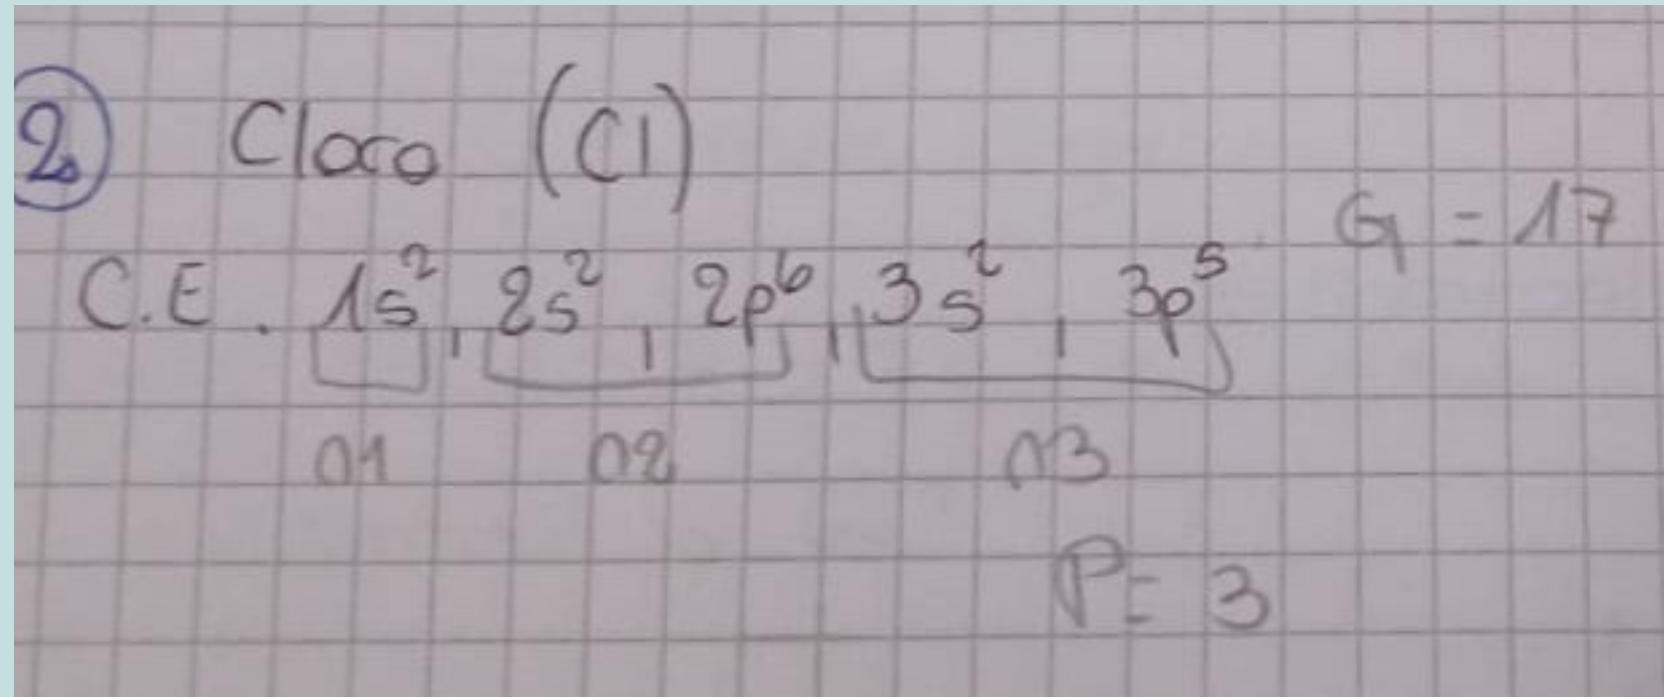 2 Cloro (Cl)
G = 17
C.E. 1s², 2s², 2p⁶, 3s², 3p⁵
n1 n2 n3
P= 3